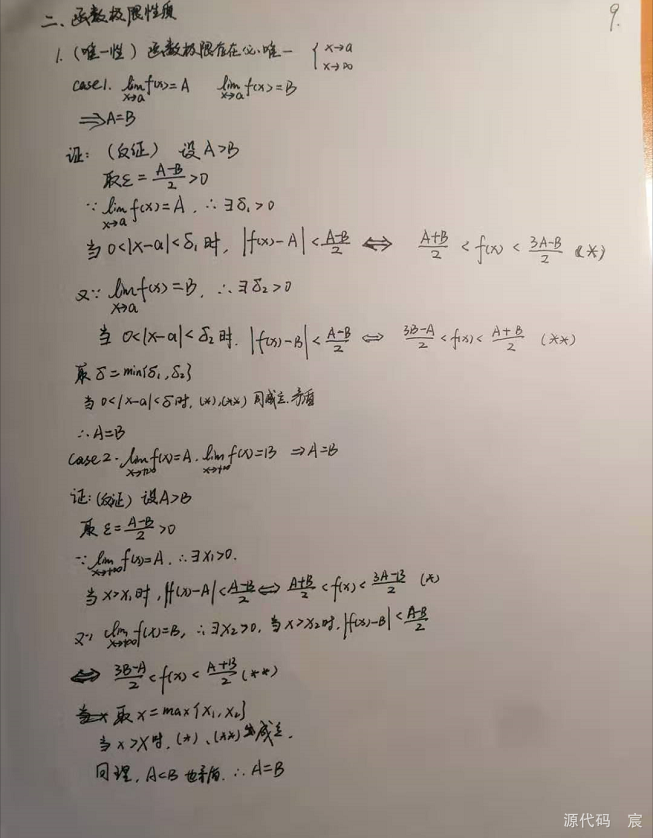 9.
二、函数极限性质
1.(唯一性)函数极限存在必唯一 { x→a
x→∞
case1. lim f(x)=A lim f(x)=B
x→a x→a
⇒A=B
证:(反证) 设A>B
取ε=(A-B)/2>0
∵lim f(x)=A, ∴∃δ₁>0
x→a
当0<|x-a|<δ₁时, |f(x)-A|<(A-B)/2 ⇔ (A+B)/2<f(x)<(3A-B)/2 (*)
又∵lim f(x)=B, ∴∃δ₂>0
x→a
当0<|x-a|<δ₂时, |f(x)-B|<(A-B)/2 ⇔ (3B-A)/2<f(x)<(A+B)/2 (**)
取δ=min{δ₁,δ₂}
当0<|x-a|<δ时, (*),(**)同成立,矛盾
∴A=B
case2. lim f(x)=A. lim f(x)=B ⇒A=B
x→+∞ x→+∞
证:(反证) 设A>B
取ε=(A-B)/2>0
∵lim f(x)=A, ∴∃X₁>0.
x→+∞
当x>X₁时, |f(x)-A|<(A-B)/2⇔(A+B)/2<f(x)<(3A-B)/2 (*)
又∵lim f(x)=B, ∴∃X₂>0, 当x>X₂时, |f(x)-B|<(A-B)/2
x→+∞
⇔ (3B-A)/2<f(x)<(A+B)/2 (**)
取X=max{X₁,X₂}
当x>X时, (*)、(**)成立.
同理, A<B也矛盾. ∴A=B
源代码 宸